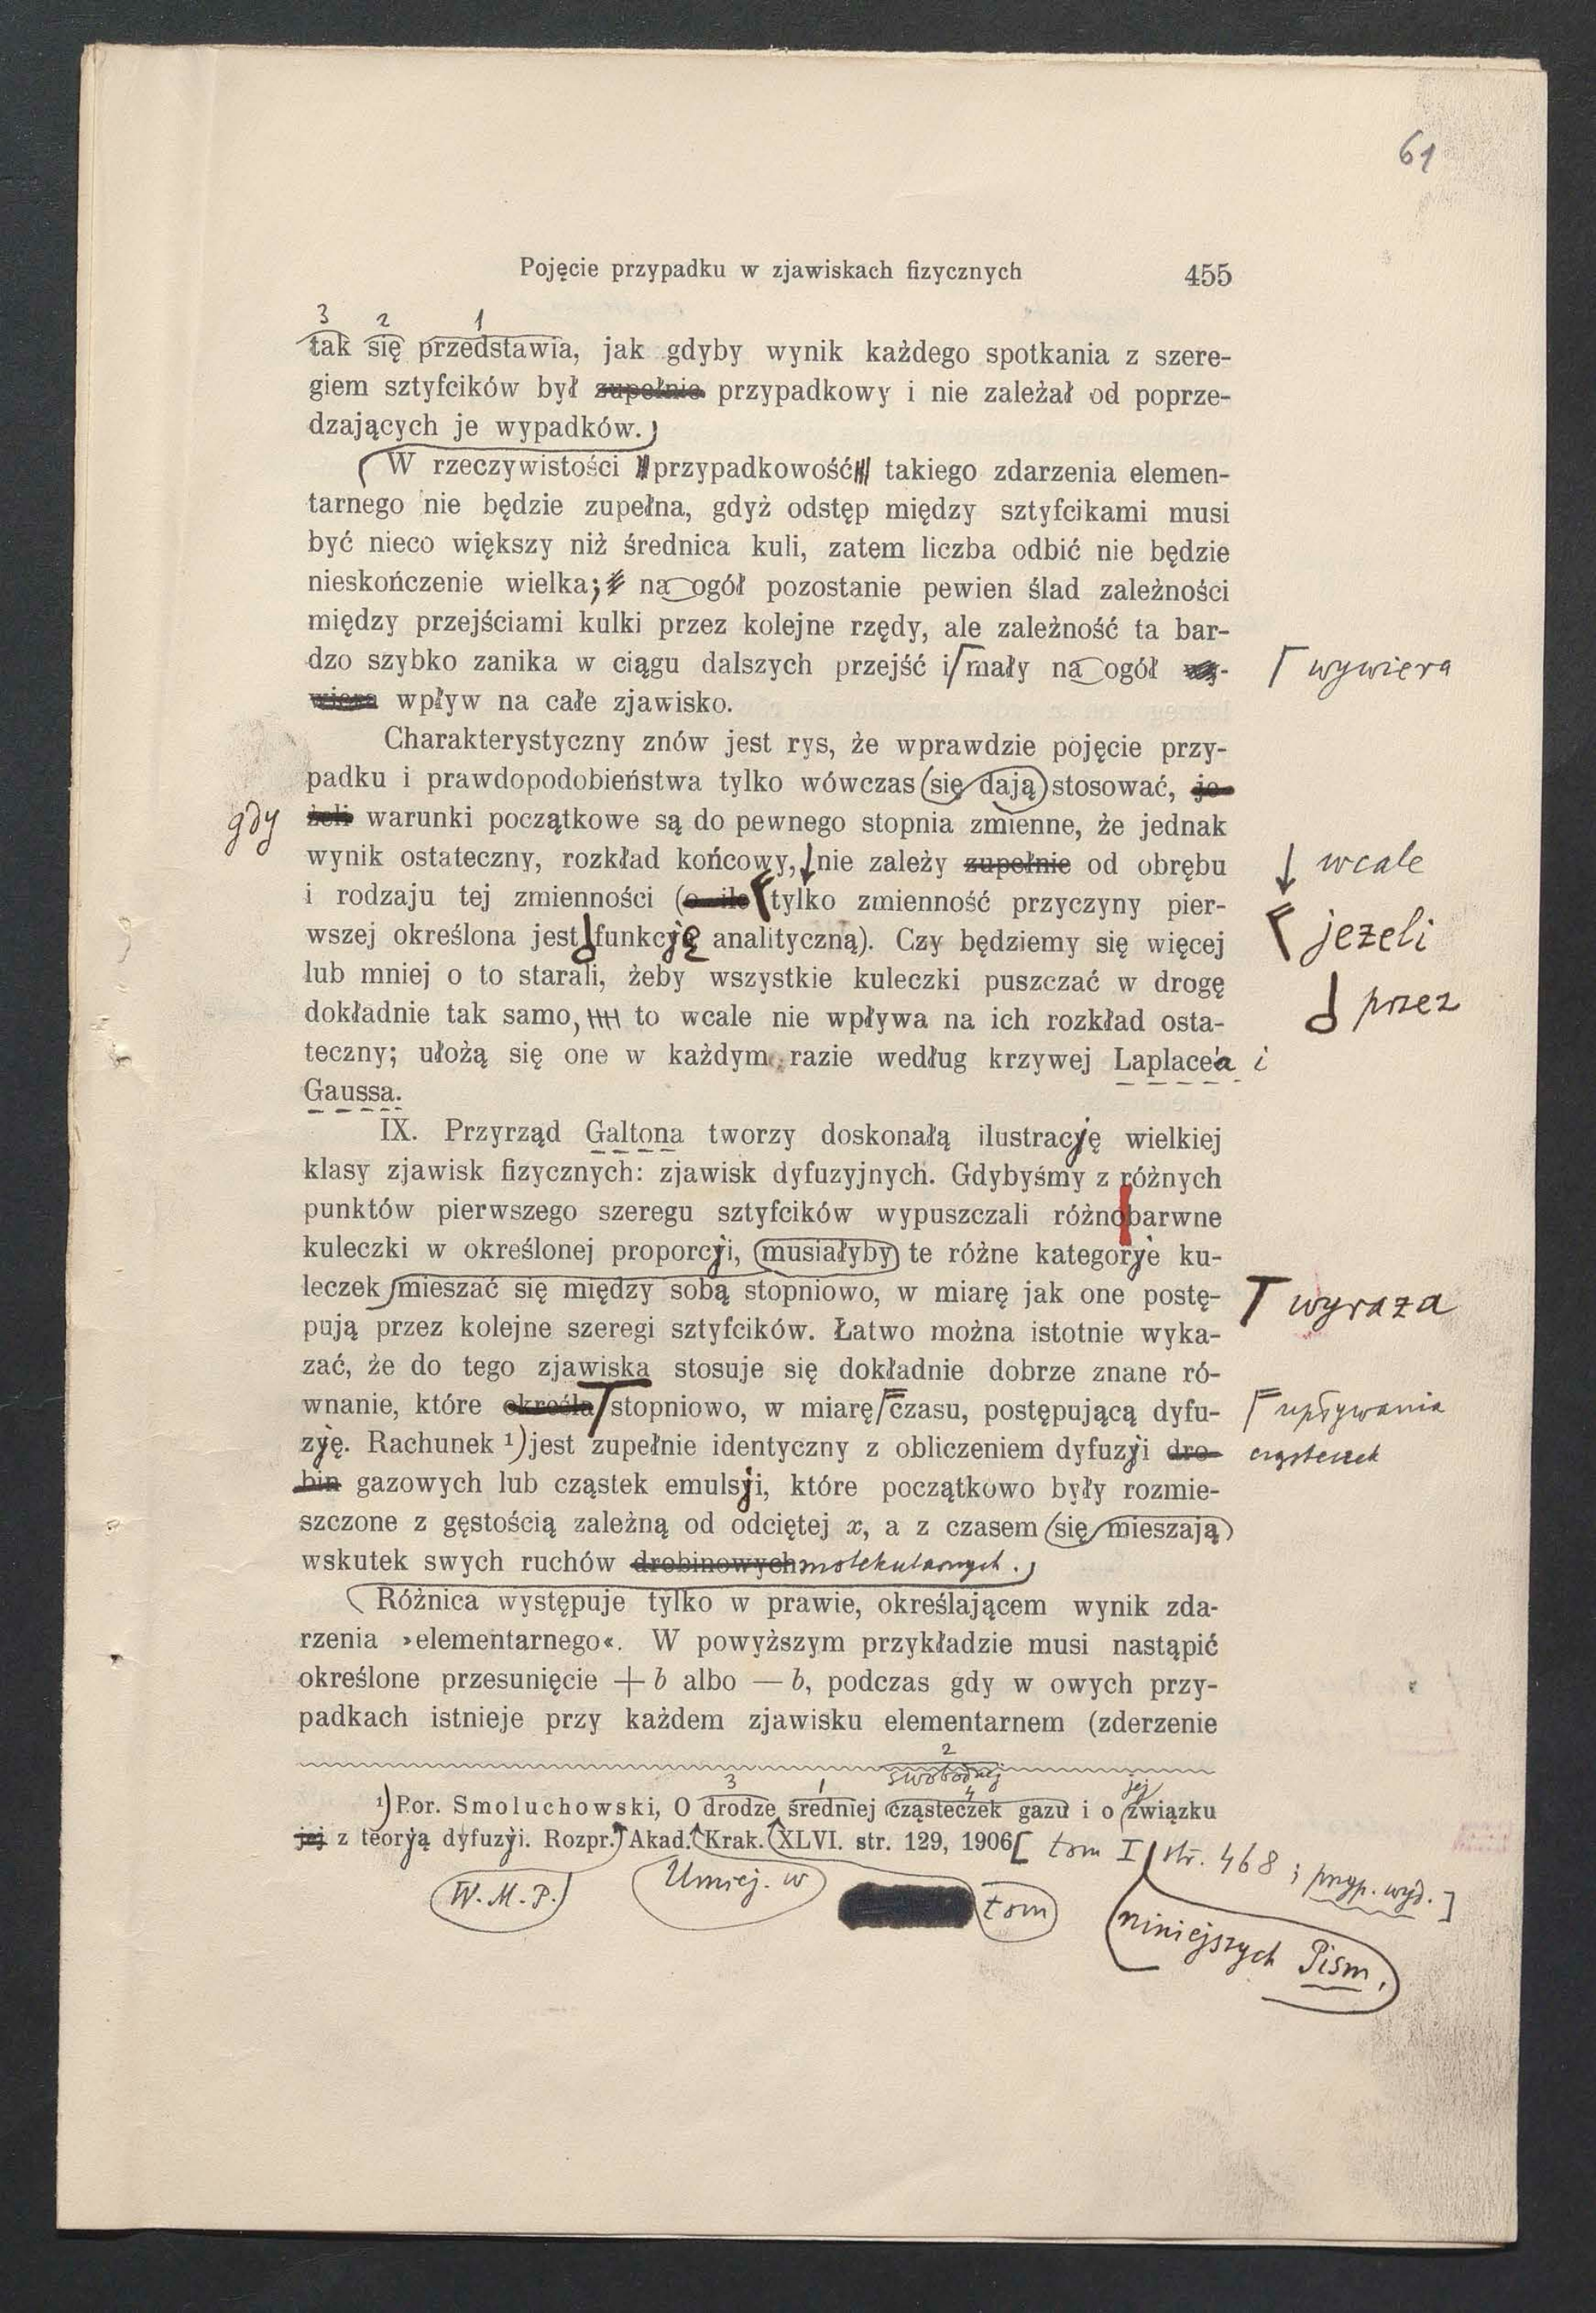 61
Pojęcie przypadku w zjawiskach fizycznych 455
3 2 1
tak się przedstawia, jak gdyby wynik każdego spotkania z szere-
giem sztyfcików był zupełnie przypadkowy i nie zależał od poprze-
dzających je wypadków.
W rzeczywistości przypadkowość takiego zdarzenia elemen-
tarnego nie będzie zupełna, gdyż odstęp między sztyfcikami musi
być nieco większy niż średnica kuli, zatem liczba odbić nie będzie
nieskończenie wielka; na ogół pozostanie pewien ślad zależności
między przejściami kulki przez kolejne rzędy, ale zależność ta bar-
dzo szybko zanika w ciągu dalszych przejść i mały na ogół wy- wywiera
wiera wpływ na całe zjawisko.
Charakterystyczny znów jest rys, że wprawdzie pojęcie przy-
padku i prawdopodobieństwa tylko wówczas się dają stosować, je-
gdy żeli warunki początkowe są do pewnego stopnia zmienne, że jednak
wynik ostateczny, rozkład końcowy, nie zależy zupełnie od obrębu wcale
i rodzaju tej zmienności (o ile tylko zmienność przyczyny pier-
wszej określona jest funkcyę analityczną). Czy będziemy się więcej jeżeli
lub mniej o to starali, żeby wszystkie kuleczki puszczać w drogę
dokładnie tak samo, to wcale nie wpływa na ich rozkład osta- przez
teczny; ułożą się one w każdym razie według krzywej Laplace'a i
Gaussa.
IX. Przyrząd Galtona tworzy doskonałą ilustracyję wielkiej
klasy zjawisk fizycznych: zjawisk dyfuzyjnych. Gdybyśmy z różnych
punktów pierwszego szeregu sztyfcików wypuszczali różnobarwne
kuleczki w określonej proporcyi, musiałyby te różne kategorye ku-
leczek mieszać się między sobą stopniowo, w miarę jak one postę- wyraża
pują przez kolejne szeregi sztyfcików. Łatwo można istotnie wyka-
zać, że do tego zjawiska stosuje się dokładnie dobrze znane ró-
wnanie, które określa stopniowo, w miarę czasu, postępującą dyfu- upływania
zyę. Rachunek ¹) jest zupełnie identyczny z obliczeniem dyfuzyi dro- cząsteczek
bin gazowych lub cząstek emulsyi, które początkowo były rozmie-
szczone z gęstością zależną od odciętej x, a z czasem się mieszają
wskutek swych ruchów drobinowych molekularnych.
Różnica występuje tylko w prawie, określającem wynik zda-
rzenia »elementarnego«. W powyższym przykładzie musi nastąpić
określone przesunięcie + b albo — b, podczas gdy w owych przy-
padkach istnieje przy każdem zjawisku elementarnem (zderzenie
2
3 1 swobodnej 4 jej
¹) Por. Smoluchowski, O drodze średniej cząsteczek gazu i o związku
jej z teoryą dyfuzyi. Rozpr. Akad. Krak. XLVI. str. 129, 1906 [tom I str. 468; przyp. wyd.]
W. M. P. Umiej. w tom niniejszych Pism.